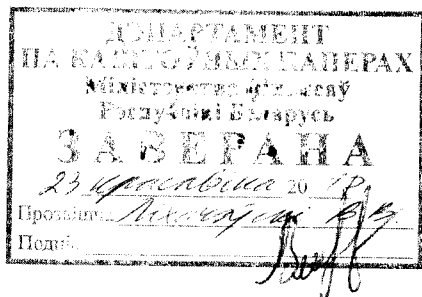 ДЭПАРТАМЕНТ
ПА КАШТОЎНЫХ ПАПЕРАХ
Міністэрства фінансаў
Рэспублікі Беларусь
ЗАВЕРАНА
23 красавіка 20
Прозвішча
Подпіс